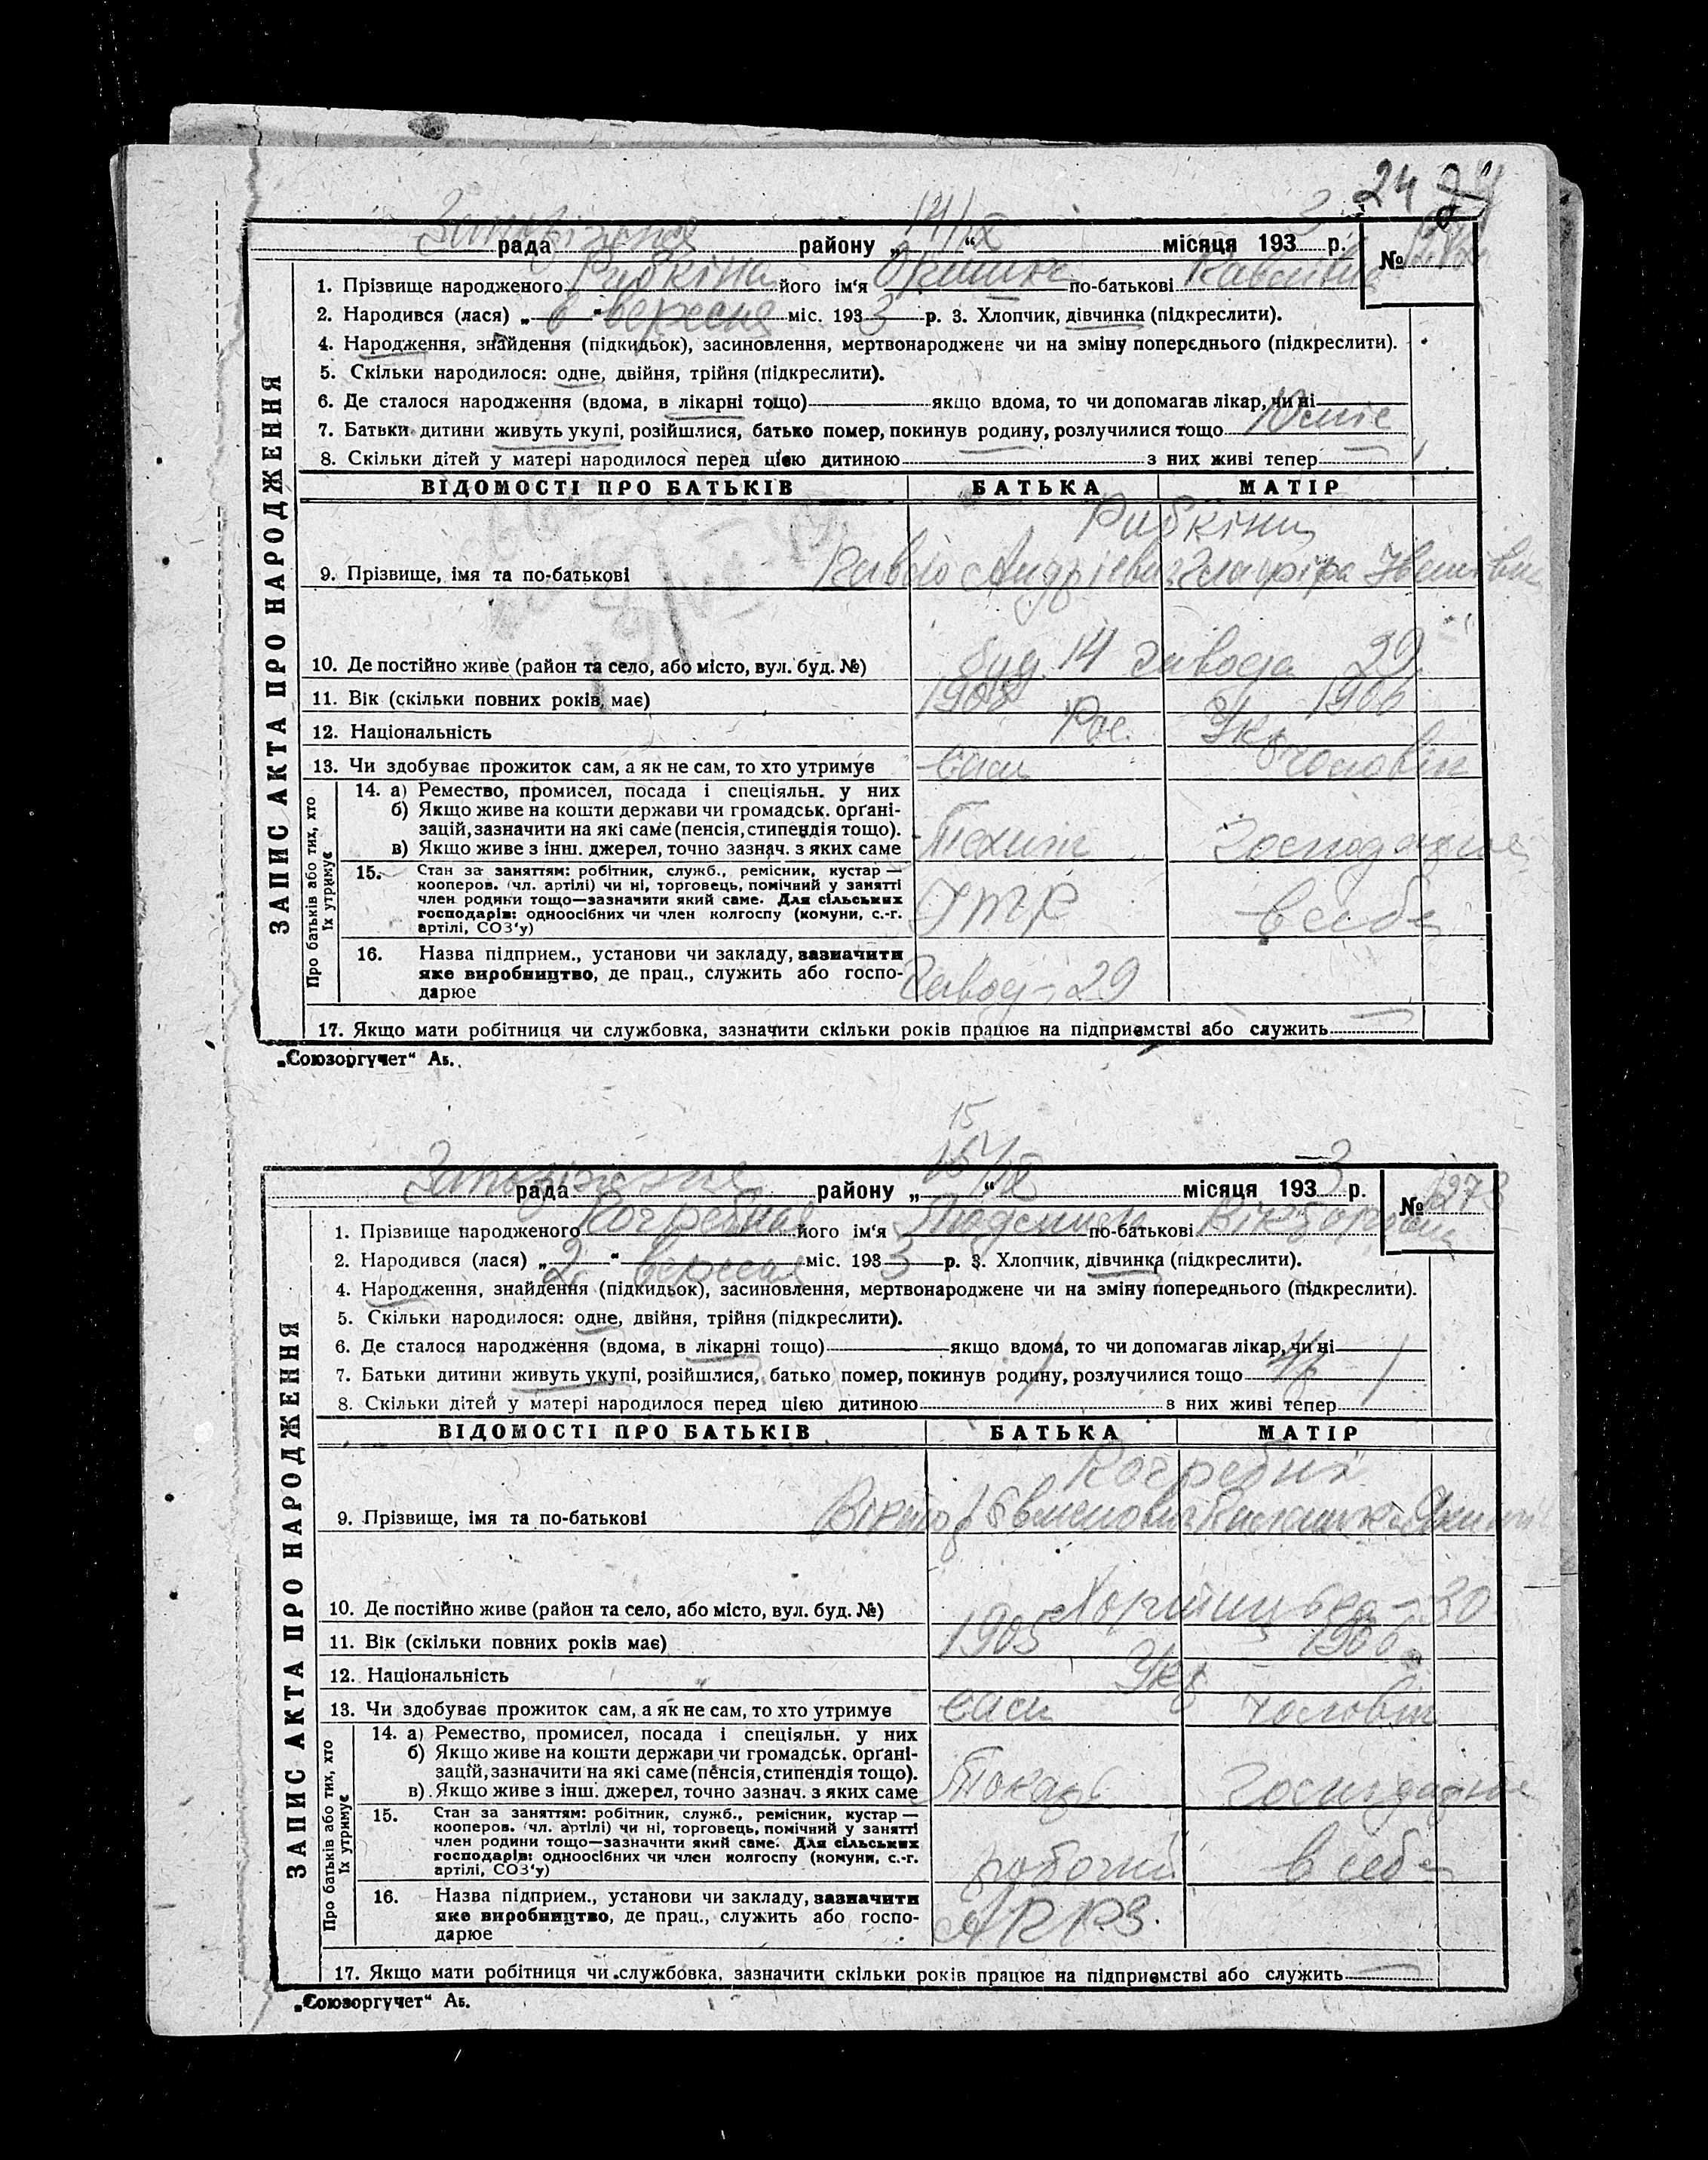 24
14/IX 3
рада району „ “ місяця 193 р. №
1. Прізвище народженого Рибкіна його ім'я по-батькові Павлівна
2. Народився (лася) „ 6 “ вересня міс. 193 3 р. 3. Хлопчик, дівчинка (підкреслити).
4. Народження, знайдення (підкидьок), засиновлення, мертвонароджене чи на зміну попереднього (підкреслити).
5. Скільки народилося: одне, двійня, трійня (підкреслити).
6. Де сталося народження (вдома, в лікарні тощо) якщо вдома, то чи допомагав лікар, чи ні
7. Батьки дитини живуть укупі, розійшлися, батько помер, покинув родину, розлучилися тощо
8. Скільки дітей у матері народилося перед цією дитиною з них живі тепер
ЗАПИС АКТА ПРО НАРОДЖЕННЯ
ВІДОМОСТІ ПРО БАТЬКІВ БАТЬКА МАТІР
Рибкіни
9. Прізвище, імя та по-батькові Павло Андрієвич Глафіра
10. Де постійно живе (район та село, або місто, вул. буд. №) буд. 14 завода 29
11. Вік (скільки повних років має) 1906
12. Національність Рос. Укр
13. Чи здобуває прожиток сам, а як не сам, то хто утримує сам чоловік
Про батьків або тих, хто їх утримує
14. а) Ремество, промисел, посада і спеціяльн. у них
б) Якщо живе на кошти держави чи громадськ. орґані-
зацій, зазначити на які саме (пенсія, стипендія тощо).
в) Якщо живе з інш. джерел, точно зазнач. з яких саме Технік Господарює
15. Стан за заняттям: робітник, служб., ремісник, кустар —
кооперов. (чл. артілі) чи ні, торговець, помічний у занятті
член родини тощо—зазначити який саме. Для сільських
господарів: одноосібних чи член колгоспу (комуни, с.-г.
артілі, СОЗ'у) ІТР в себе
16. Назва підприєм., установи чи закладу, зазначити
яке виробництво, де прац., служить або госпо-
дарює Завод-29
17. Якщо мати робітниця чи службовка, зазначити скільки років працює на підприємстві або служить
„Союзоргучет“ Аб.
15
15/IX 3
рада району „ “ місяця 193 р. № 1273
1. Прізвище народженого його ім'я Людмила по-батькові Вікторовна
2. Народився (лася) „ 2 “ вересня міс. 193 3 р. 3. Хлопчик, дівчинка (підкреслити).
4. Народження, знайдення (підкидьок), засиновлення, мертвонароджене чи на зміну попереднього (підкреслити).
5. Скільки народилося: одне, двійня, трійня (підкреслити).
6. Де сталося народження (вдома, в лікарні тощо) якщо вдома, то чи допомагав лікар, чи ні
7. Батьки дитини живуть укупі, розійшлися, батько помер, покинув родину, розлучилися тощо
8. Скільки дітей у матері народилося перед цією дитиною з них живі тепер
ЗАПИС АКТА ПРО НАРОДЖЕННЯ
ВІДОМОСТІ ПРО БАТЬКІВ БАТЬКА МАТІР
9. Прізвище, імя та по-батькові Віктор
10. Де постійно живе (район та село, або місто, вул. буд. №) 30
11. Вік (скільки повних років має) 1905 1906
12. Національність Укр
13. Чи здобуває прожиток сам, а як не сам, то хто утримує сам чоловік
Про батьків або тих, хто їх утримує
14. а) Ремество, промисел, посада і спеціяльн. у них
б) Якщо живе на кошти держави чи громадськ. орґані-
зацій, зазначити на які саме (пенсія, стипендія тощо).
в) Якщо живе з інш. джерел, точно зазнач. з яких саме Токарь Господарює
15. Стан за заняттям: робітник, служб., ремісник, кустар —
кооперов. (чл. артілі) чи ні, торговець, помічний у занятті
член родини тощо—зазначити який саме. Для сільських
господарів: одноосібних чи член колгоспу (комуни, с.-г.
артілі, СОЗ'у) робочий в себе
16. Назва підприєм., установи чи закладу, зазначити
яке виробництво, де прац., служить або госпо-
дарює
17. Якщо мати робітниця чи службовка, зазначити скільки років працює на підприємстві або служить
„Союзоргучет“ Аб.